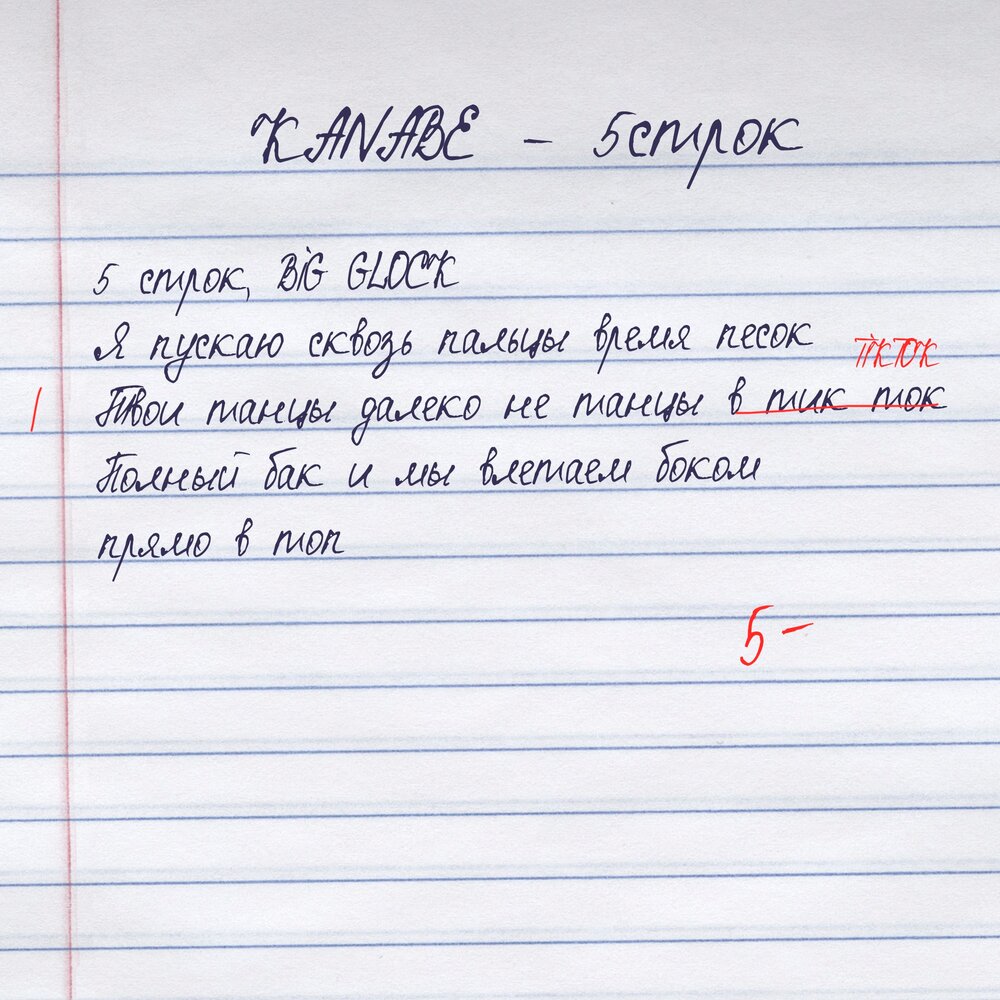 KANABE - 5 строк
5 строк, BiG GLOCK
Я пускаю сквозь пальцы время песок
TİKTOK
| Твои танцы далеко не танцы в тик ток
Полный бак и мы влетаем боком
прямо в топ
5-